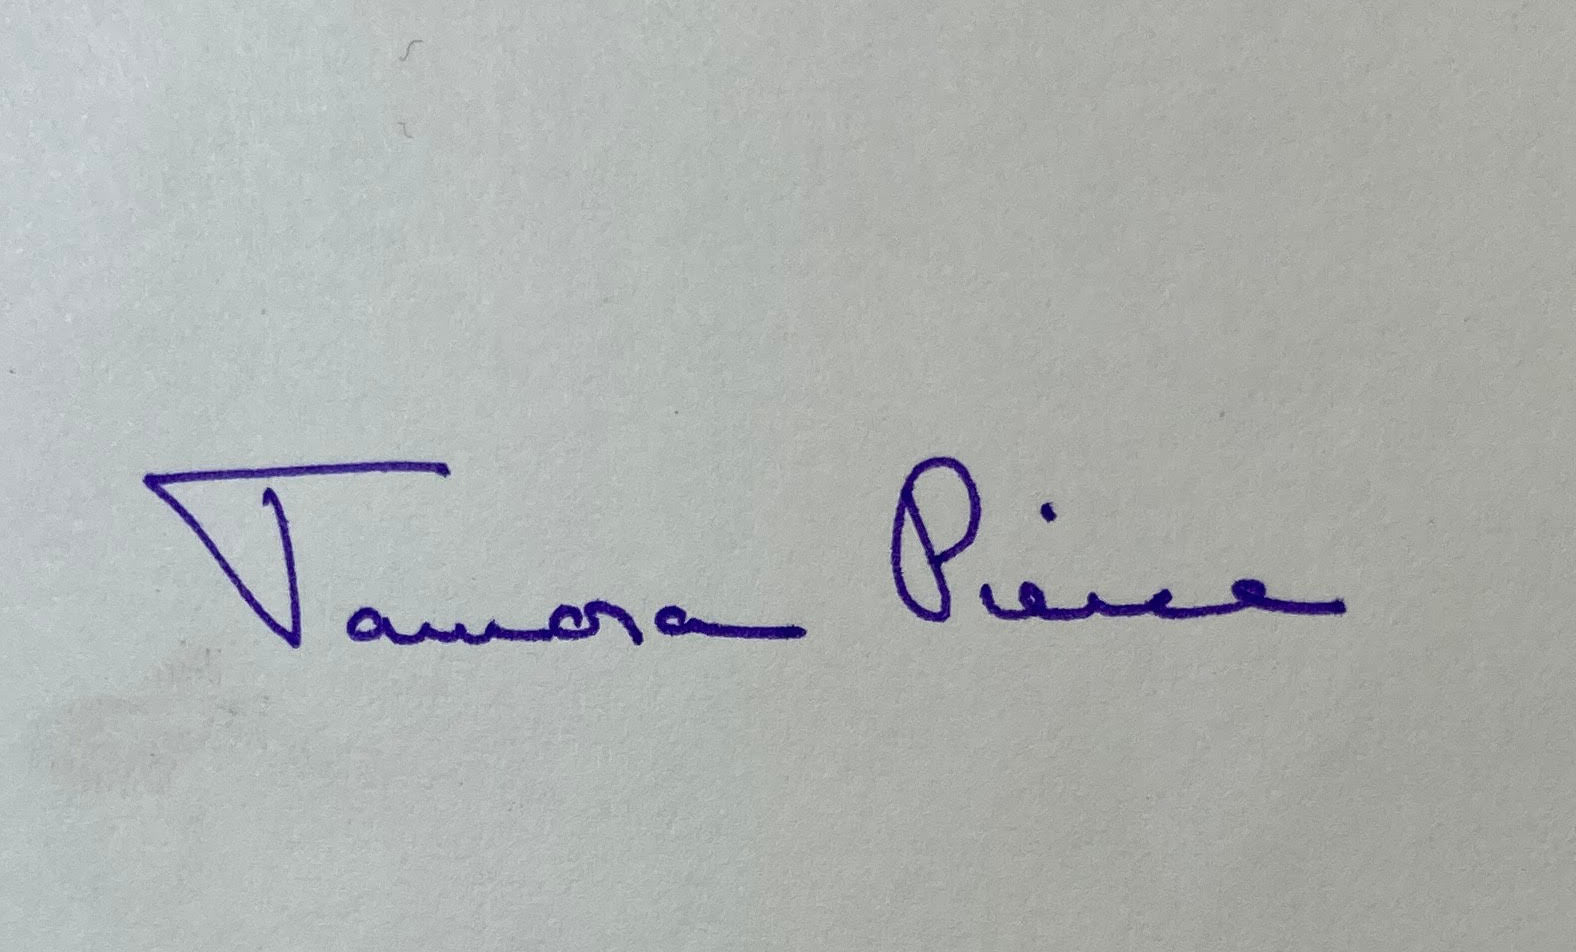 Tamora Pierce